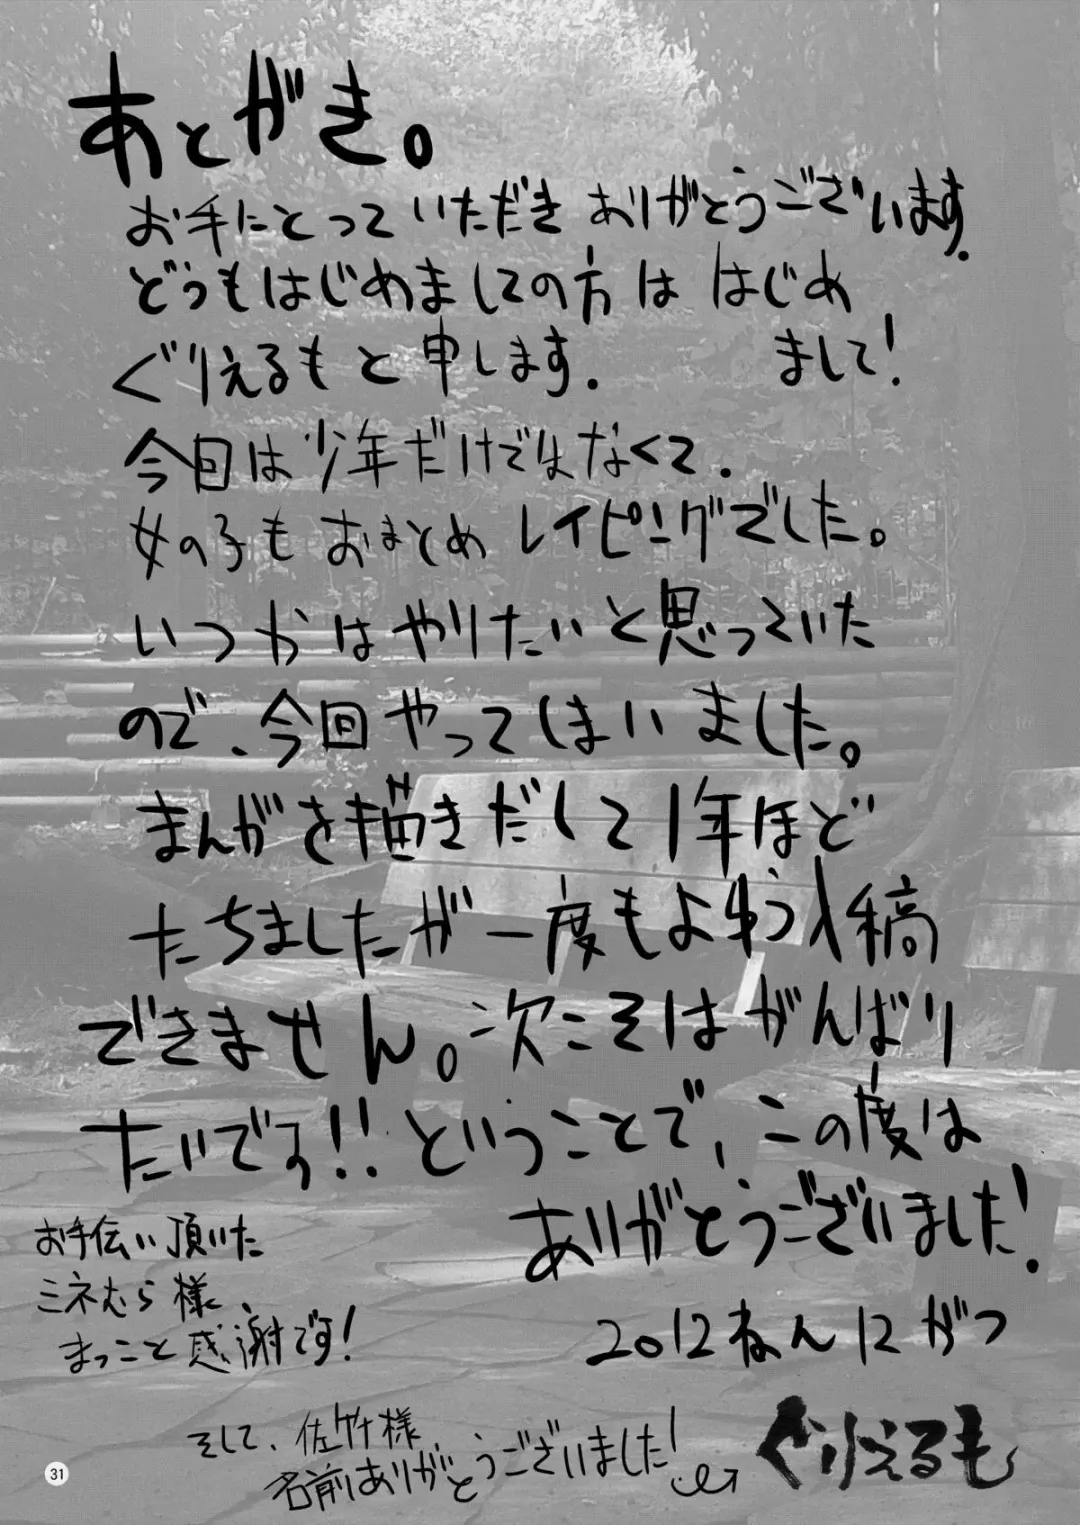 あとがき。
お手にとっていただき ありがとうございます。
どうもはじめましての方は はじめ
まして!
ぐりえるもと申します.
今回は少年だけではなくて.
女の子もおまとめレイピングでした。
いつかはやりたいと思っていた
ので、今回やってしまいました。
まんがを描きだして1年ほど
たちましたが一度もよゆう入稿
できません。次こそはがんばり
たいです!!ということで、この度は
ありがとうございました!
お手伝い頂いた
ミネむら様、
まっこと感謝です!
2012ねん12がつ
そして、佐竹様
名前ありがとうございました!
ぐりえるも
31